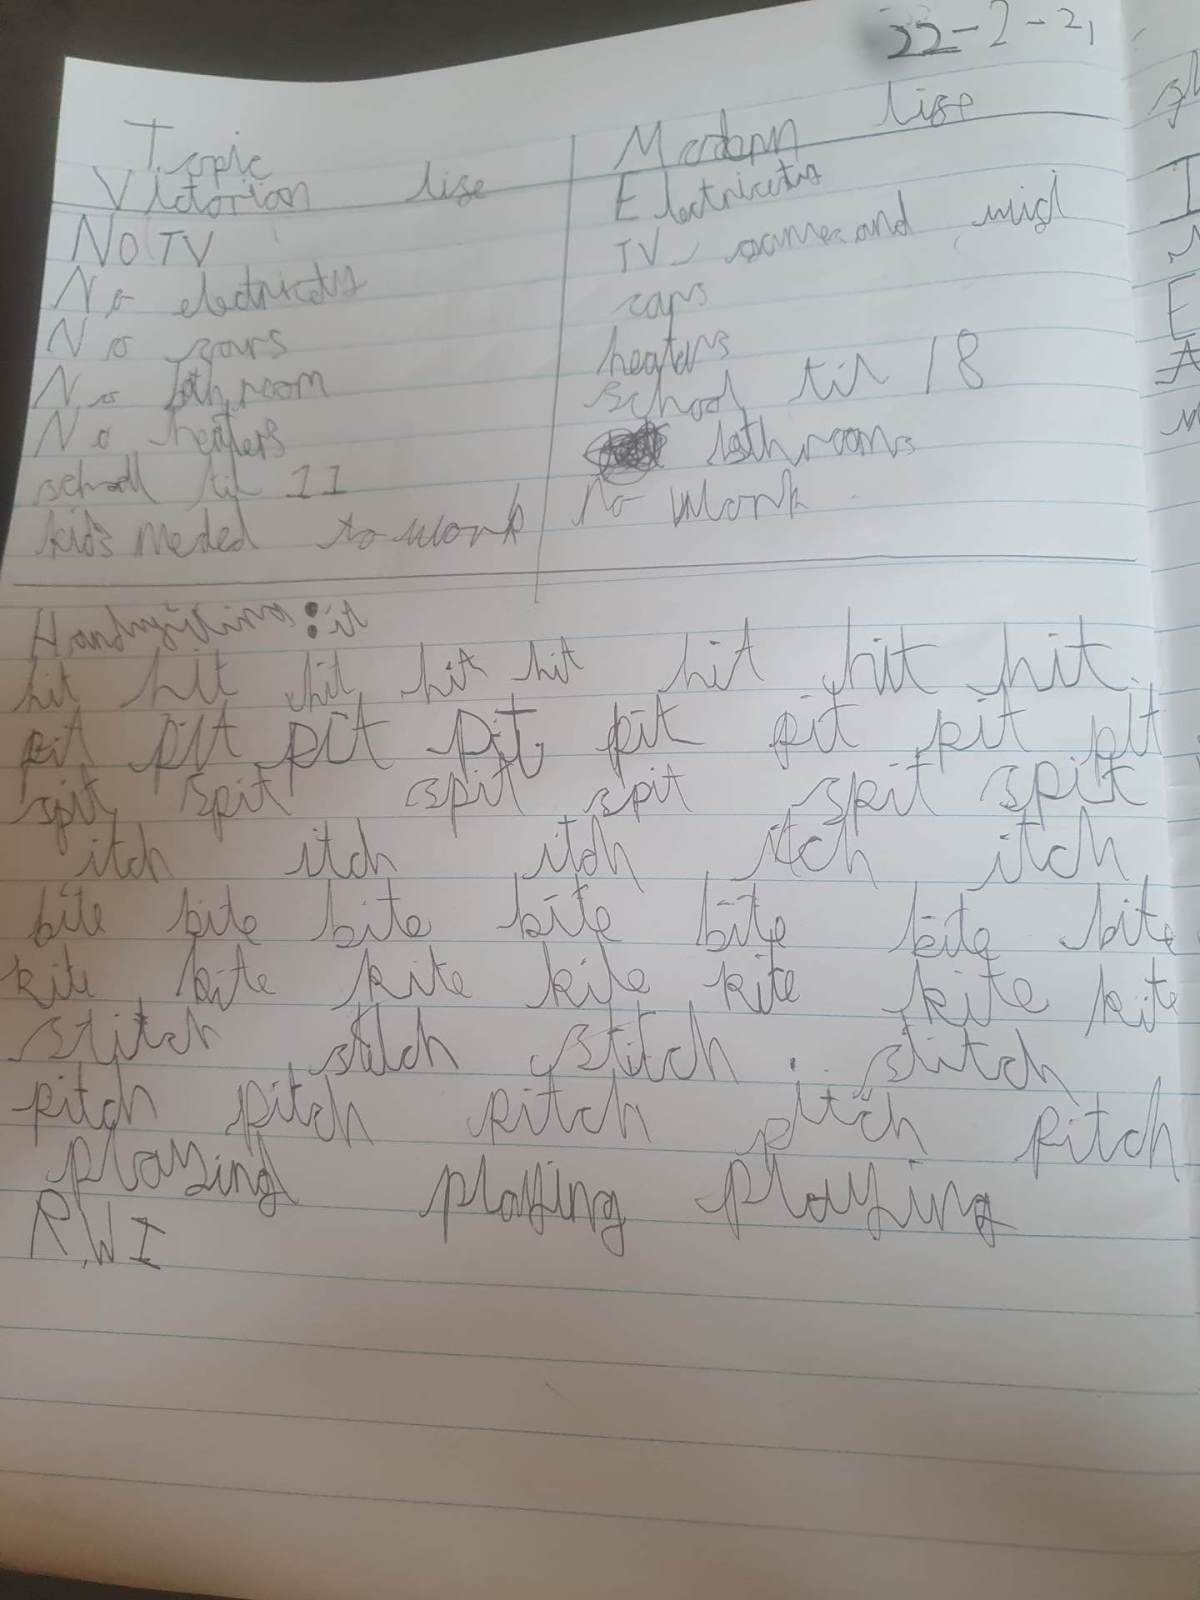 22-2-21
Topic
Victorian life
No TV
No electricity
No cars
No bathroom
No heaters
school til 11
kids needed to work
Modern life
Electricity
TV games and
cars
heaters
school til 18
bathrooms
no work
Handwriting: it
hit hit hit hit hit hit hit hit
pit pit pit pit pit pit pit pit
spit spit spit spit spit spit
itch itch itch itch itch
bite bite bite bite bite bite bite
kite kite kite kite kite kite kite
stitch stitch stitch stitch
pitch pitch pitch pitch pitch
playing playing playing
RWI